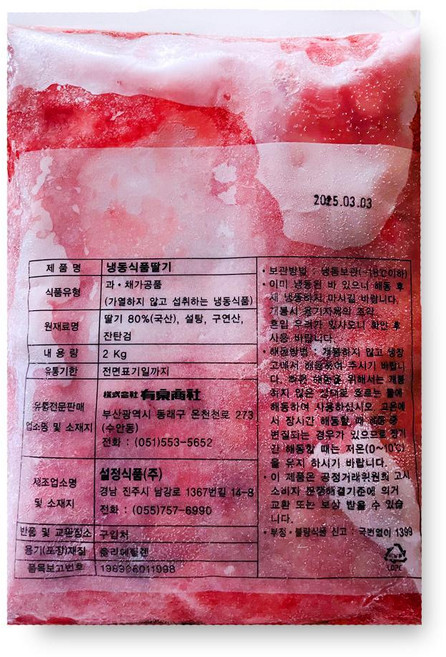 2025.03.03
제 품 명 냉동식품딸기
식품유형 과·채가공품
(가열하지 않고 섭취하는 냉동식품)
원재료명 딸기 80%(국산), 설탕, 구연산,
잔탄검
내 용 량 2 Kg
유통기한 전면표기일까지
유통전문판매
업소명 및 소재지
株式会社 有泉商社
부산광역시 동래구 온천천로 273
(수안동)
전화 : (051)553-5652
제조업소명
및 소재지
설정식품(주)
경남 진주시 남강로 1367번길 14-8
전화 : (055)757-6990
반품 및 교환장소 구입처
용기(포장)재질 폴리에틸렌
품목보고번호
·보관방법 : 냉동보관(-18℃이하)
·이미 냉동된 바 있으니 해동 후
재 냉동하지 마시길 바랍니다.
개봉시 용기자체의 조각
혼입 우려가 있사오니 확인 후
사용 바랍니다.
·해동방법 : 개봉하지 않고 냉장
고에서 해동하여 주시기 바랍니
다. 하지 않은 상태로 흐르는 물에
해동하여 사용하십시오.
서 장시간 해동할 때
변질되는 경우가 있으므로 장시
간 해동할 때는 저온(0~10℃)
을 유지 하시기 바랍니다.
·이 제품은 공정거래위원회 고시
소비자 분쟁해결기준에 의거
교환 또는 보상 받을 수 있습
니다.
·부정·불량식품 신고 : 국번없이 1399
LDPE